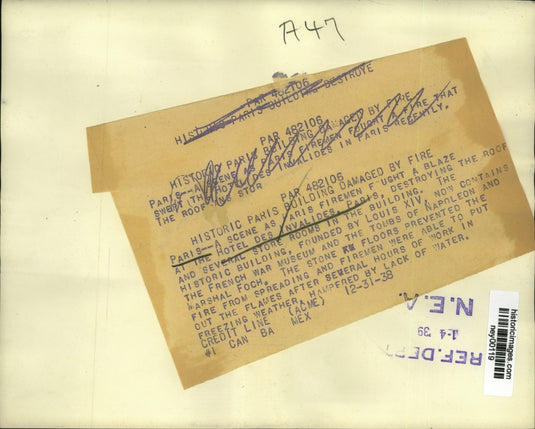 A47
PAR 482106
HISTORIC PARIS BUILDING DESTROYE
PAR 482106
HISTORIC PARIS BUILDING DAMAGED BY FIRE
PARIS--A SCENE AS PARIS FIREMEN FOUGHT A FIRE THAT
SWEPT THE HOTEL DES INVALIDES IN PARIS RECENTLY.
THE ROOF AND STOR
PAR 482106
HISTORIC PARIS BUILDING DAMAGED BY FIRE
PARIS--A SCENE AS PARIS FIREMEN F'UGHT A BLAZE
AT THE HOTEL DES INVALIDES, PARIS, DESTROYING THE ROOF
AND SEVERAL STORE ROOMS IN THE BUILDING. THE
HISTORIC BUILDING, FOUNDED BY LOUIS XIV, NOW CONTAINS
THE FRENCH WAR MUSEUM AND THE TOUBS OF NAPOLEON AND
MARSHAL FOCH. THE STONE FLOORS PREVENTED THE
FIRE FROM SPREADING AND FIREMEN WERE ABLE TO PUT
OUT THE FLAMES AFTER SEVERAL HOURS OF WORK IN
FREEZING WEATHER, HAMPERED BY LACK OF WATER.
CREDIT LINE (ACME) 12-31-38
#1 CAN BA MEX
N.E.A.
1-4 39
REF.DEPT
historicimages.com
ney00119